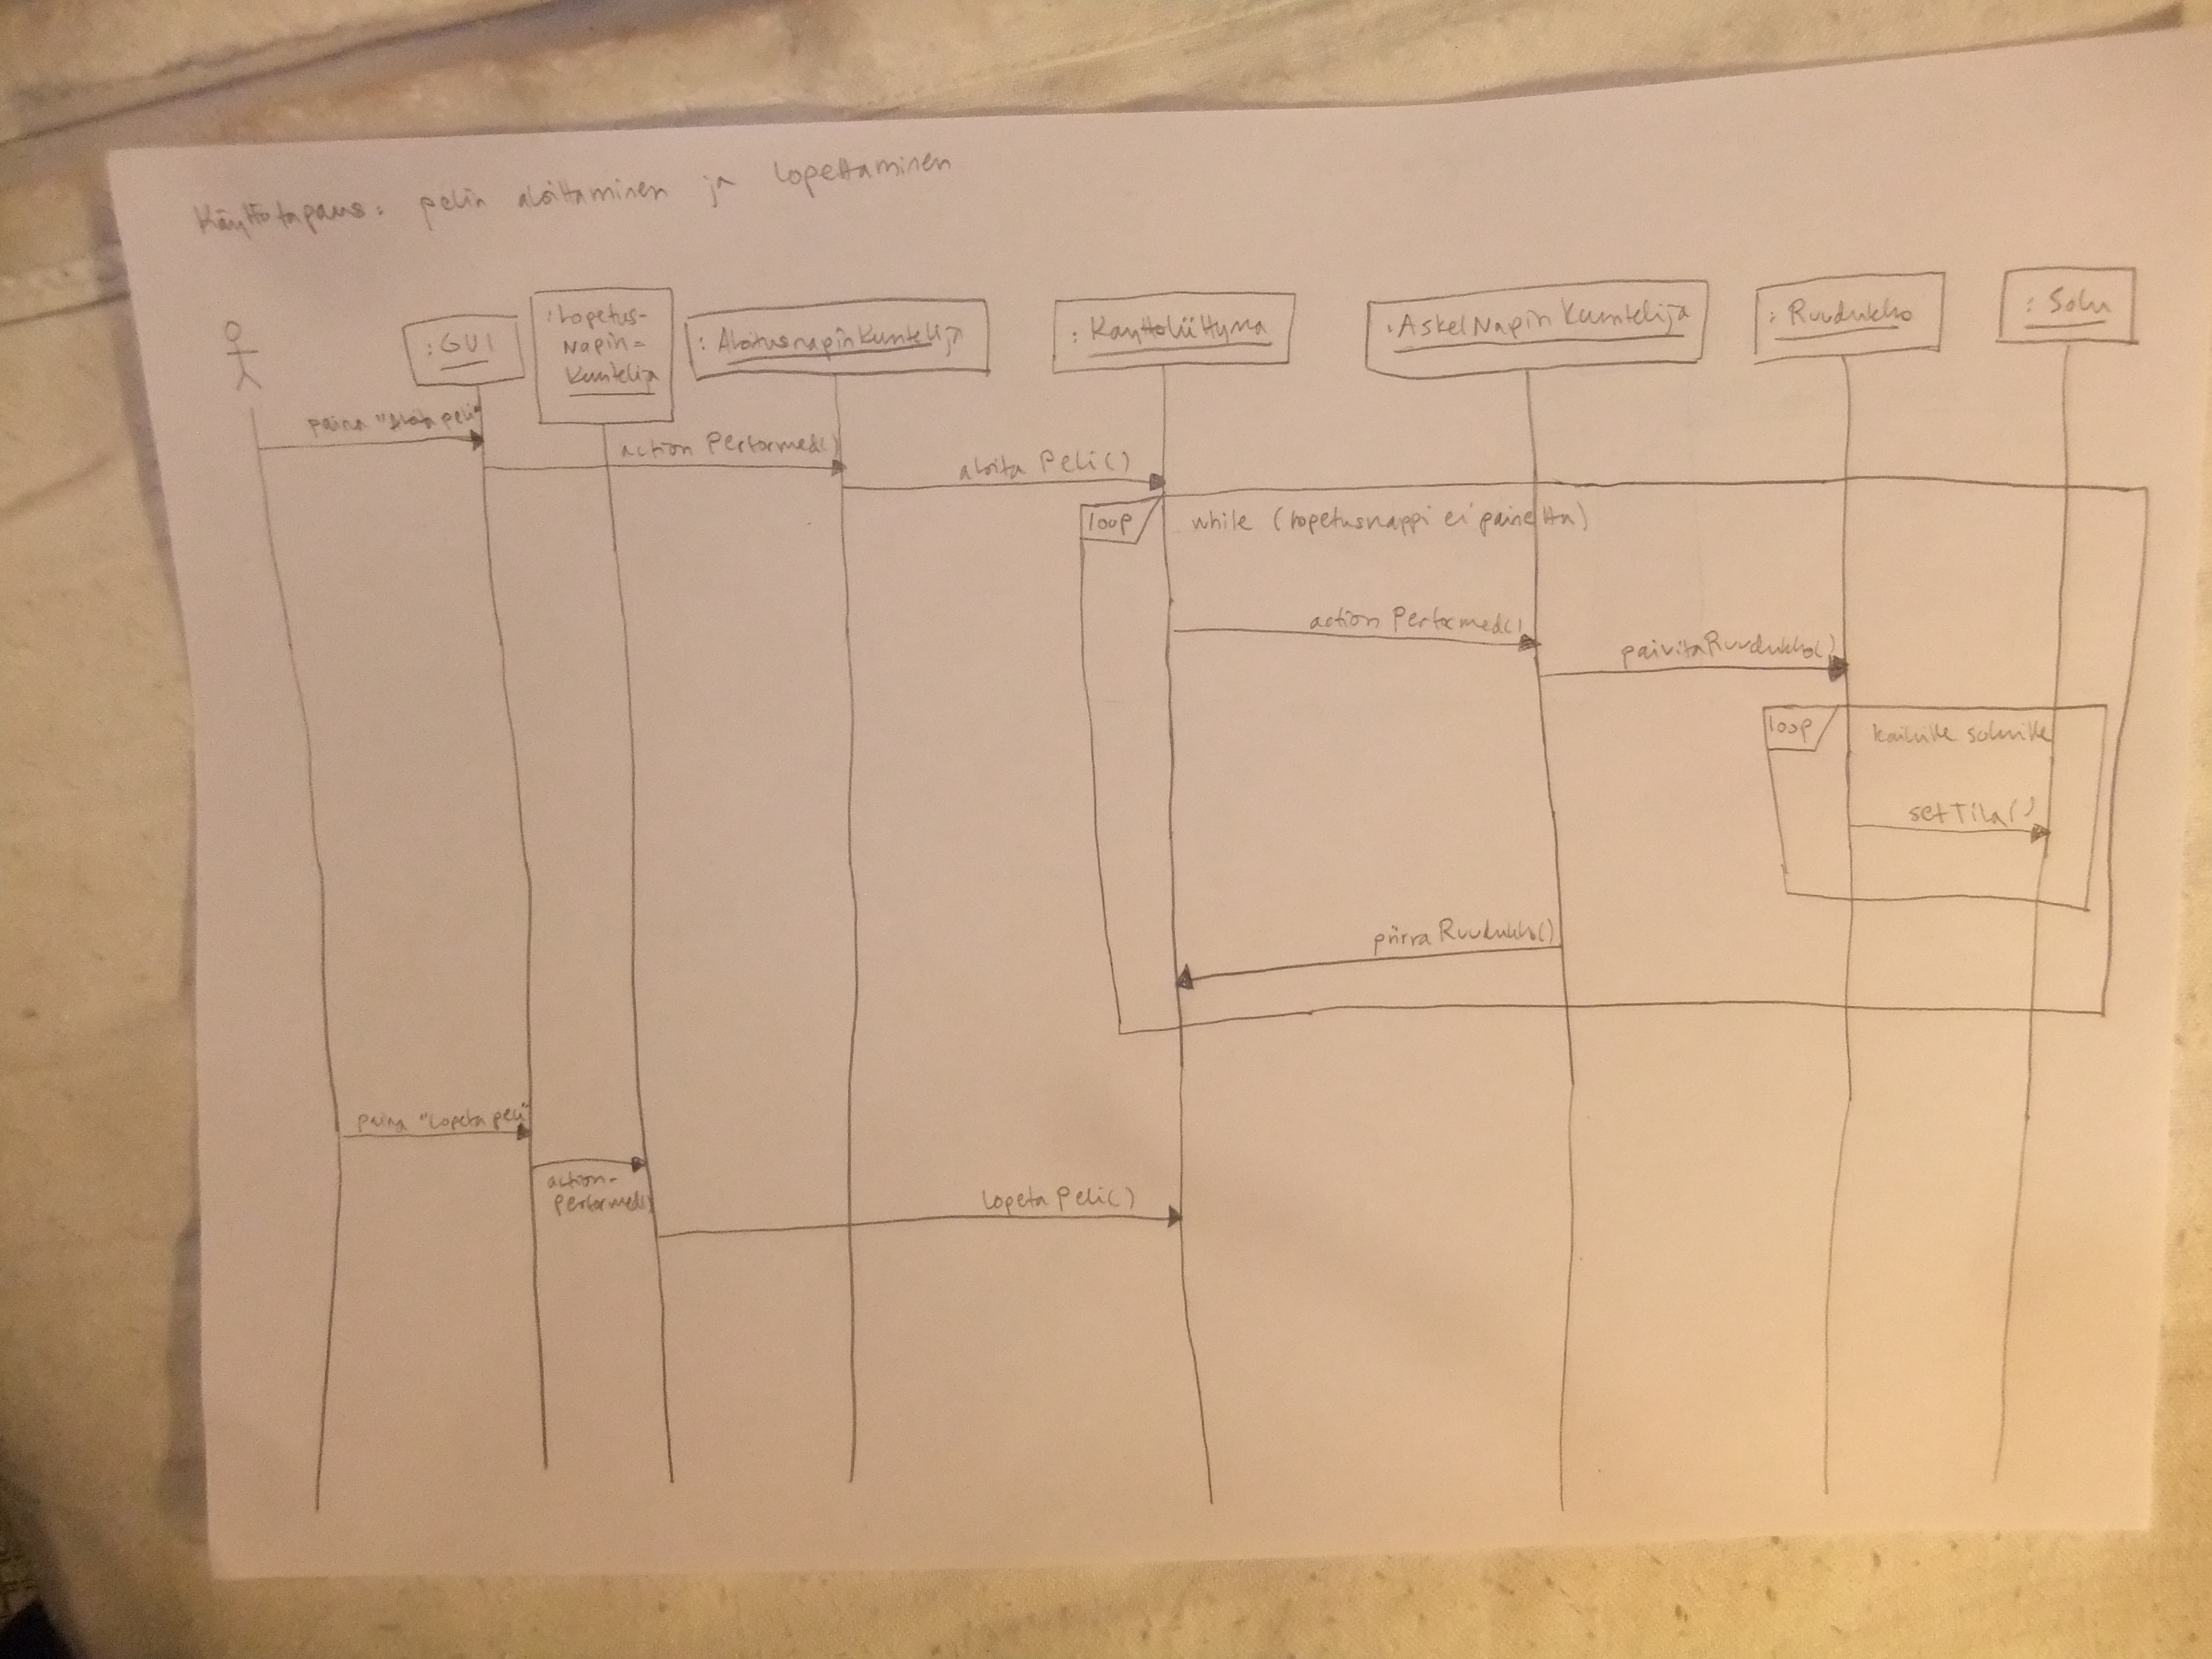 Käyttötapaus: pelin aloittaminen ja lopettaminen
:GUI
:Lopetus-
Napin-
Kuuntelija
:AloitusnapinKuuntelija
:Käyttöliittymä
:AskelNapinKuuntelija
:Ruudukko
:Solu
paina "Aloita peli"
actionPerformed()
aloitaPeli()
loop
while (lopetusnappi ei painettu)
actionPerformed()
päivitäRuudukko()
loop
kaikille soluille
setTila()
piirräRuudukko()
paina "Lopeta peli"
action-
Performed()
lopetaPeli()